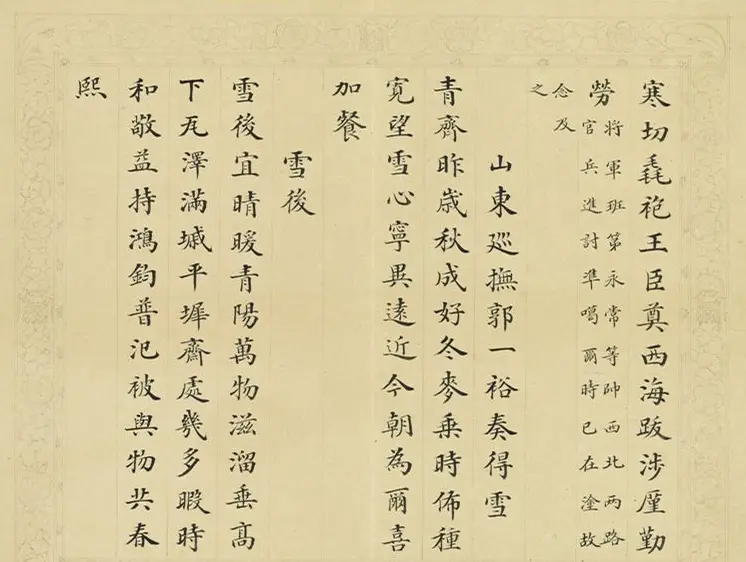 寒切毳袍王臣奠西海跋涉厪勤
勞
將軍班第永常等帥西北两路
官兵進討準噶爾時已在塗故
念及
之
山東巡撫郭一裕奏得雪
青齊昨歲秋成好冬麥乗時佈種
寛望雪心寧異遠近今朝為爾喜
加餐
雪後
雪後宜晴暖青陽萬物滋溜垂髙
下瓦澤滿墄平墀齋處幾多暇時
和敬益持鴻鈞普氾被與物共春
熙